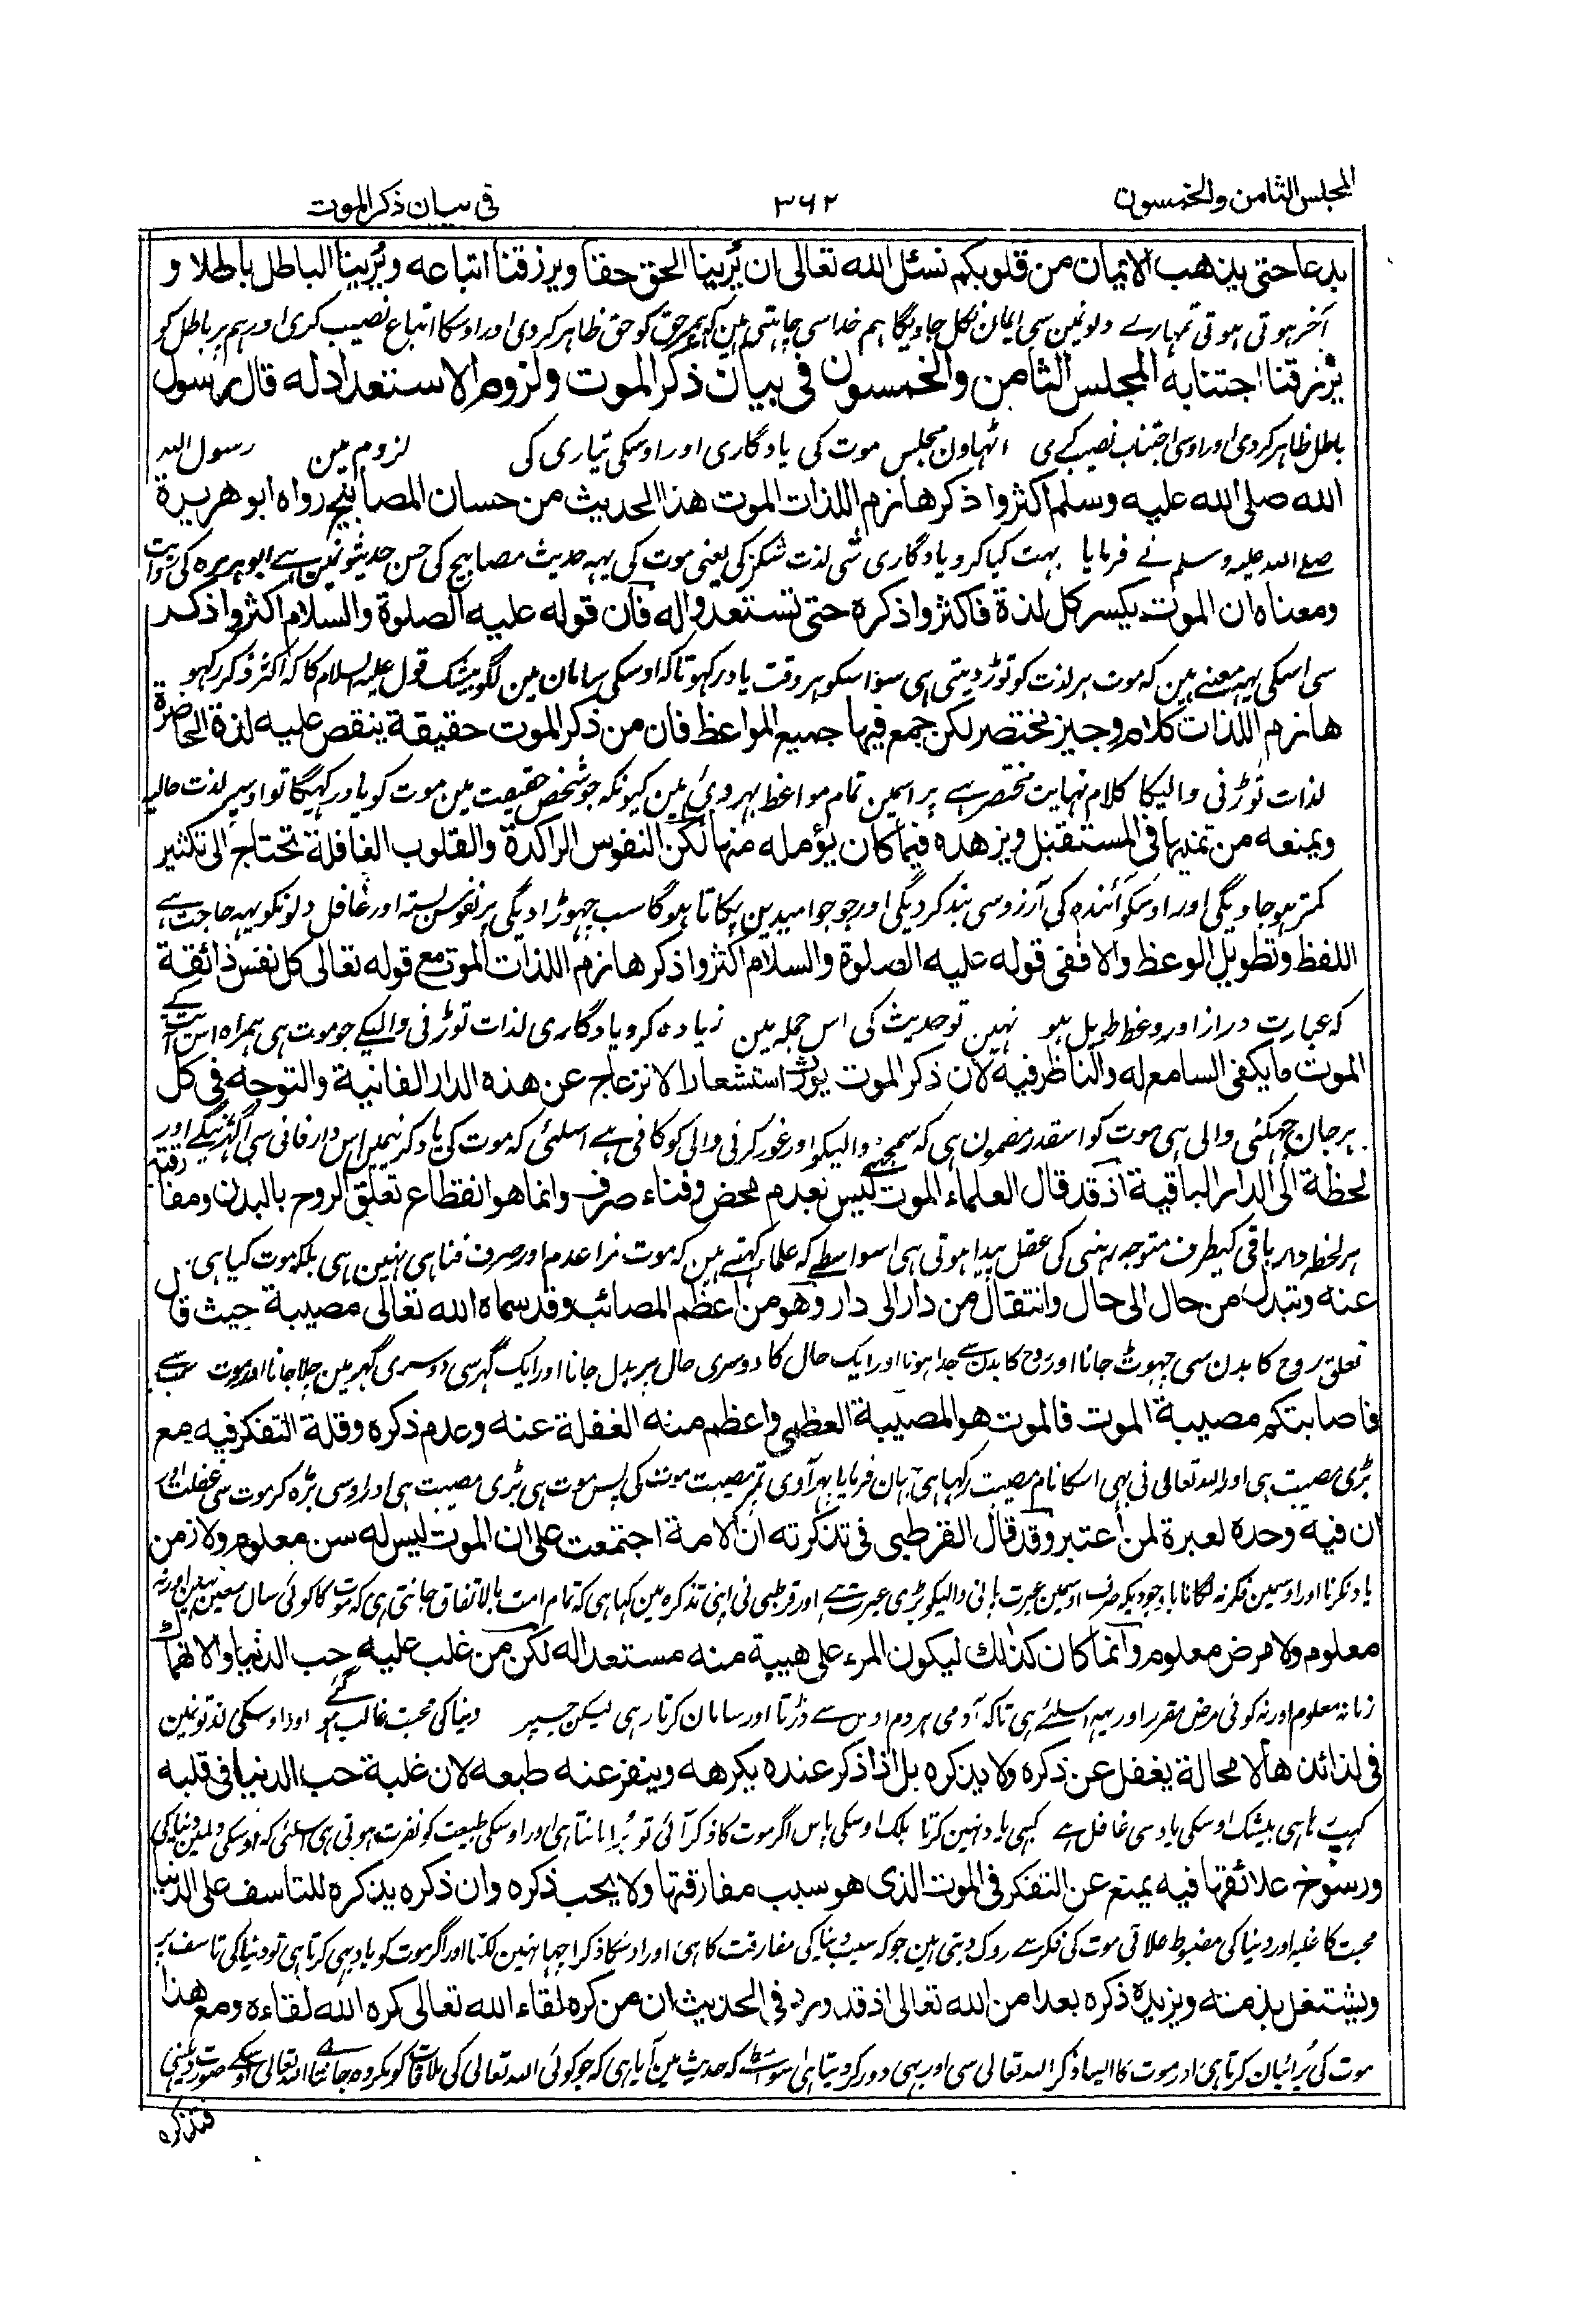 المجلس الثامن والخمسون ۳۶۲ في بيان ذكر الموت
بدعا حتى يذهب الايمان من قلوبكم نسئل الله تعالى ان يُرينا الحق حقا ويرزقنا اتباعه ويُرينا الباطل باطلا و
آخر ہوتی ہوتی تمہارے دلونمین سی ایمان نکل جاویگا ہم خداسی چاہتی ہین کہ ہمپر حق کو حق ظاہر کردی اور اوسکا اتباع نصیب کری اور ہم پر باطل کو
يرزقنا اجتنابه المجلس الثامن والخمسون في بيان ذكر الموت ولزوم الاستعداد له قال رسول
باطل ظاہر کردی اور اوسی اجتناب نصیب کے ی اٹہاون مجلس موت کی یادگاری اور اوسکی تیاری کی لزوم مین رسول اللہ
الله صلى الله عليه وسلم اكثروا ذكر هازم اللذات الموت هذا الحديث من حسان المصابيح رواه ابو هريرة
صلے اللہ علیہ وسلم نے فرمایا بہت کیا کرو یادگاری شی لذت شکن کی یعنی موت کی یہہ حدیث مصابیح کی حسن حدیثونمین سے ابو ہریرہ کی روایت
ومعناه ان الموت يكسر كل لذة فاكثروا ذكره حتى تستعدوا له فان قوله عليه الصلوة والسلام اكثروا ذكر
سی اسکی یہہ معنے ہین کہ موت ہر لذت کو توڑ دیتی ہی سو اسکو ہر وقت یاد رکہو تاکہ اوسکی سامان مین لگو بیشک قول علیہ السلام کا کہ اکثر ذکر رکہو
هازم اللذات كلام وجيز مختصر لكن جمع فيها جميع المواعظ فان من ذكر الموت حقيقة ينقص عليه لذة الحاضرة
لذات توڑنی والیکا کلام نہایت مختصر ہے پر اسمین تمام مواعظ بہر دئی ہین کیونکہ جو شخص حقیقت مین موت کو یاد رکہیگا تو اوسپر لذت حالیہ
ويمنعه من تمنيها في المستقبل ويزهده فيما كان يؤمله منها لكن النفوس الراكدة والقلوب الغافلة تحتاج الى تكثير
کمتر ہوجاویگی اور اوسکو آئندہ کی آرزو سی بند کردیگی اور جو جو امیدین پکاتا ہوگا سب چہوڑا دیگی پر نفوس بستہ اور غافل دلونکو یہہ حاجت ہے
اللفظ وتطويل الوعظ والا ففي قوله عليه الصلوة والسلام اكثروا ذكر هازم اللذات الموت مع قوله تعالى كل نفس ذائقة
کہ عبارت دراز اور وعظ طویل ہو نہین تو حدیث کی اس جملہ مین زیادہ کرو یادگاری لذات توڑنی والیکے جو موت ہی ہمراہ اس آیت کے
الموت ما يكفي السامع له والناظر فيه لان ذكر الموت يورث استشعارا لانزعاج عن هذه الدار الفانية والتوجه في كل
ہر جان چہکنی والی ہی موت کو اسقدر مضمون ہی کہ سمجہنے والیکو اور غور کرنی والی کو کافی ہے اسلئی کہ موت کی یاد کرنیمین اس دار فانی سی اکہڑنیکے اور
لحظة الى الدار الباقية اذ قد قال العلماء الموت ليس بعدم محض وفناء صرف وانما هو انقطاع تعلق الروح بالبدن ومفارقته
ہر لحظہ دار باقی کیطرف متوجہ رہنی کی عقل پیدا ہوتی ہی اسواسطے کہ علماء کہتے ہین کہ موت نرا عدم اور صرف فنا ہی نہین ہی بلکہ موت کیا ہی
عنه وتبدل من حال الى حال وانتقال من دار الى دار وهو من اعظم المصائب وقد سماه الله تعالى مصيبة حيث قال
تعلق روح کا بدن سی چہوٹ جانا اور روح کا بدن سے جدا ہونا اور ایک حال کا دوسری حال پر بدل جانا اور ایک گہر سی دوسری گہر مین چلا جانا اور موت سب سے
فاصابتكم مصيبة الموت فالموت هو المصيبة العظمى واعظم منه الغفلة عنه وعدم ذكره وقلة التفكر فيه مع
بڑی مصیبت ہی اور اللہ تعالی نی بہی اسکا نام مصیبت رکہا ہی جہان فرمایا پہر آوی تمپر مصیبت موت کی پس موت ہی بڑی مصیبت ہی اور اوسی بڑہ کر موت سی غفلت اور
ان فيه وحده لعبرة لمن اعتبر وقد قال القرطبي في تذكرته ان الامة اجتمعت على ان الموت ليس له سن معلوم ولا زمن
یاد نکرنا اور اوسمین فکر نہ لگانا باوجودیکہ صرف اوسمین عبرت پانی والیکو بڑی عبرت ہے اور قرطبی نی اپنی تذکرہ مین کہا ہی کہ تمام امت بالاتفاق جانتی ہی کہ موت کا کوئی سال معین نہین اور نہ
معلوم ولا مرض معلوم وانما كان كذلك ليكون المرء على هيبة منه مستعدا له لكن من غلب عليه حب الدنيا والانهماك
زمانہ معلوم اور نہ کوئی مرض مقرر اور یہہ اسلئے ہی تاکہ آدمی ہر دم اوس سے ڈرتا اور سامان کرتا رہی لیکن جسپر دنیا کی محبت غالب ہو گئے اور اوسکی لذتونمین
في لذائذها لا محالة يغفل عن ذكره ولا يذكره بل اذا ذكر عنده يكرهه وينفر عنه طبعه لان غلبة حب الدنيا في قلبه
کہپ رہا ہی بیشک اوسکی یاد سی غافل ہے کبہی یاد نہین کرتا بلکہ اوسکی پاس اگر موت کا ذکر آئی تو بُرا مانتا ہی اور اوسکی طبیعت کو نفرت ہوتی ہی اسلئی کہ اوسکی دلمین دنیا کی
ورسوخ علائقها فيه يمنع عن التفكر في الموت الذى هو سبب مفارقتها ولا يحب ذكره وان ذكره يذكره للتاسف على الدنيا
محبت کا غلبہ اور دنیا کی مضبوط علاقی موت کی فکر سے روک دیتی ہین جو کہ سبب دنیا کی مفارقت کا ہی اور اوسکا ذکر اچہا نہین لگتا اور اگر موت کو یاد بہی کرتا ہی تو دنیا کی تاسف پر
ويشتغل بذمه ويزيده ذكره بعدا من الله تعالى اذ قد ورد في الحديث ان من كره لقاء الله تعالى كره الله لقاءه ومع هذا
موت کی بُرائیان کرتا ہی اور موت کا ایسا ذکر اللہ تعالی سی اور بہی دور کر دیتا ہی کہ حدیث مین آیا ہی کہ جو کوئی اللہ تعالی کی ملاقات کو مکروہ جانی اللہ تعالی
فتذكره